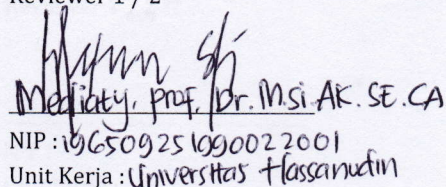 Reviewer 1 / 2
Mediaty. Prof. Dr. M.si AK. SE. CA
NIP : 196509251990022001
Unit Kerja : Universitas Hassanudin